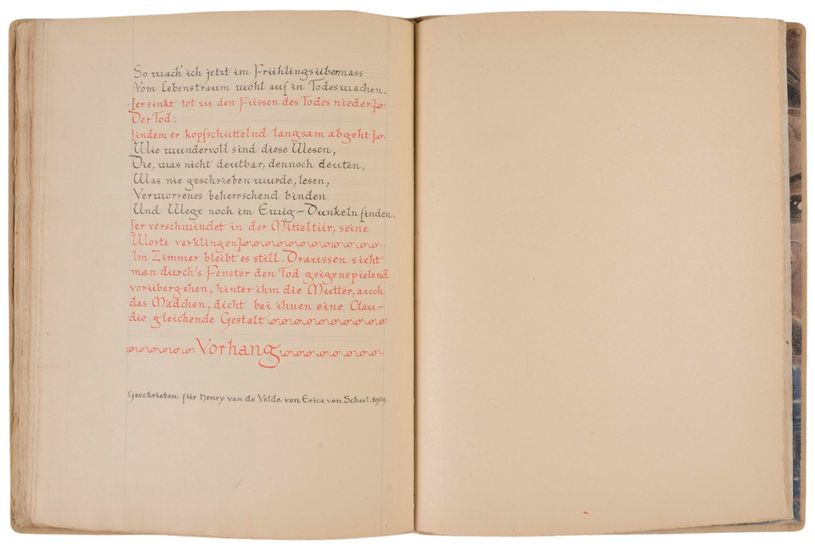 So wach' ich jetzt im Frühlingsübermass
Vom Lebenstraum wohl auf in Todeswachen.
[er sinkt tot zu den Füssen des Todes nieder]
Der Tod:
[indem er kopfschüttelnd langsam abgeht]
Wie wundervoll sind diese Wesen,
Die, was nicht deutbar, dennoch deuten,
Was nie geschrieben wurde, lesen,
Verworrenes beherrschend binden
Und Wege noch im Ewig-Dunkeln finden.
[er verschwindet in der Mitteltür, seine
Worte verklingen]
Im Zimmer bleibt es still. Draussen sieht
man durch's Fenster den Tod geigenspielend
vorübergehen, hinter ihm die Mutter, auch
das Mädchen, dicht bei ihnen eine Clau-
dio gleichende Gestalt.
Vorhang
Geschrieben für Henry van de Velde von Erica von Scheel. 1909.